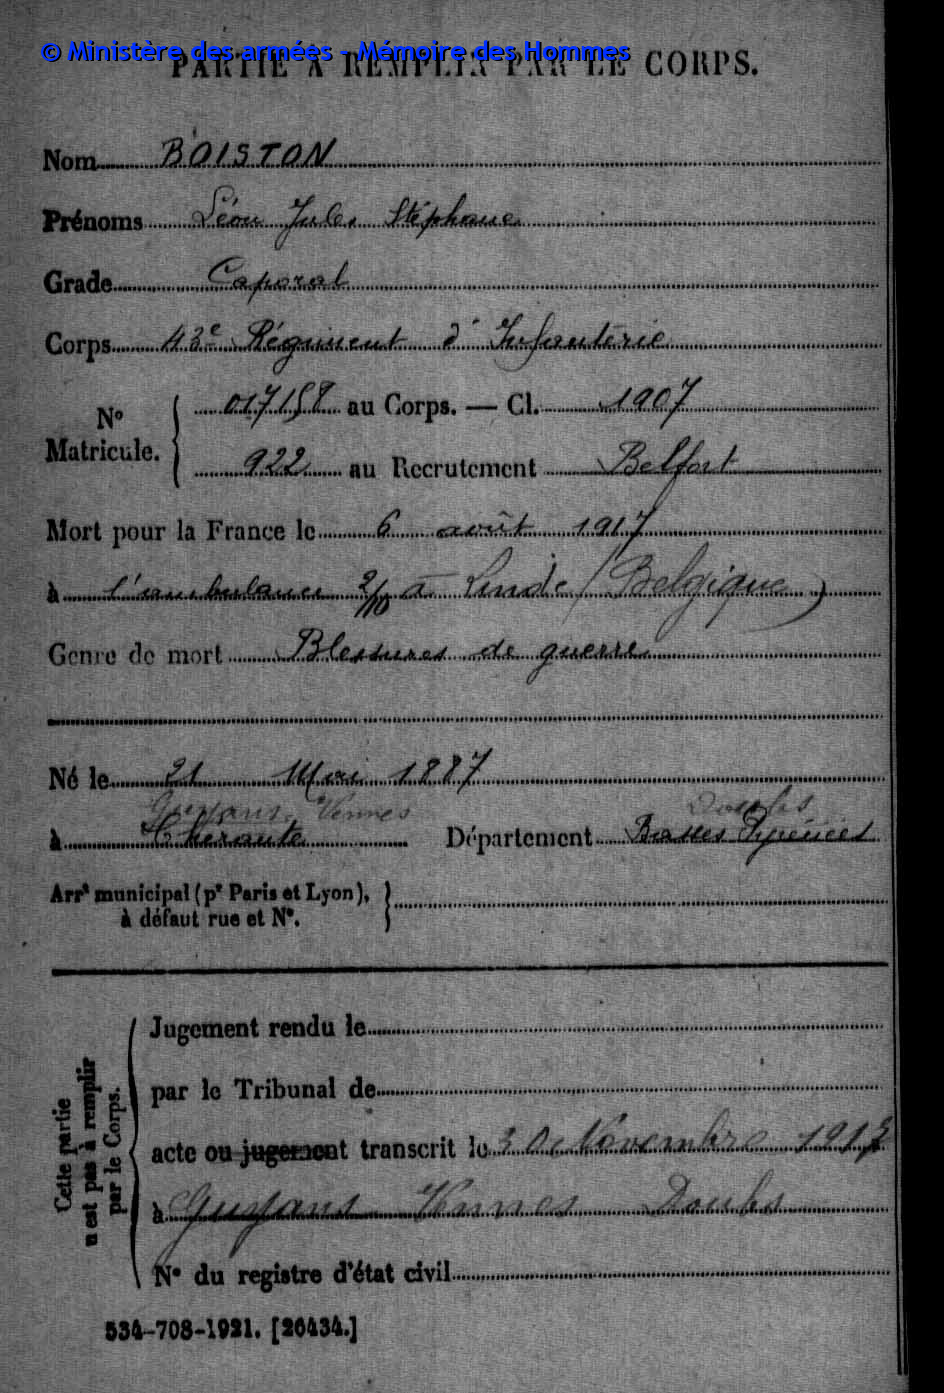 © Ministère des armées - Mémoire des Hommes
PARTIE À REMPLIR PAR LE CORPS.
Nom BOISTON
Prénoms Léon Jules Stéphane
Grade Caporal
Corps 43e Régiment d'Infanterie
No Matricule. { 017158 au Corps. — Cl. 1907
922 au Recrutement Belfort
Mort pour la France le 6 août 1917
à l'ambulance 2/10 à Linde (Belgique)
Genre de mort Blessures de guerre
Né le 21 Mai 1887
Guyans Vennes Doubs
à Chéraute Département Basses Pyrénées
Arrt municipal (pr Paris et Lyon), à défaut rue et No. }
Cette partie n'est pas à remplir par le Corps.
Jugement rendu le
par le Tribunal de
acte ou jugement transcrit le 30 Novembre 1917
à Guyans Vennes Doubs
No du registre d'état civil
534-708-1921. [26434.]